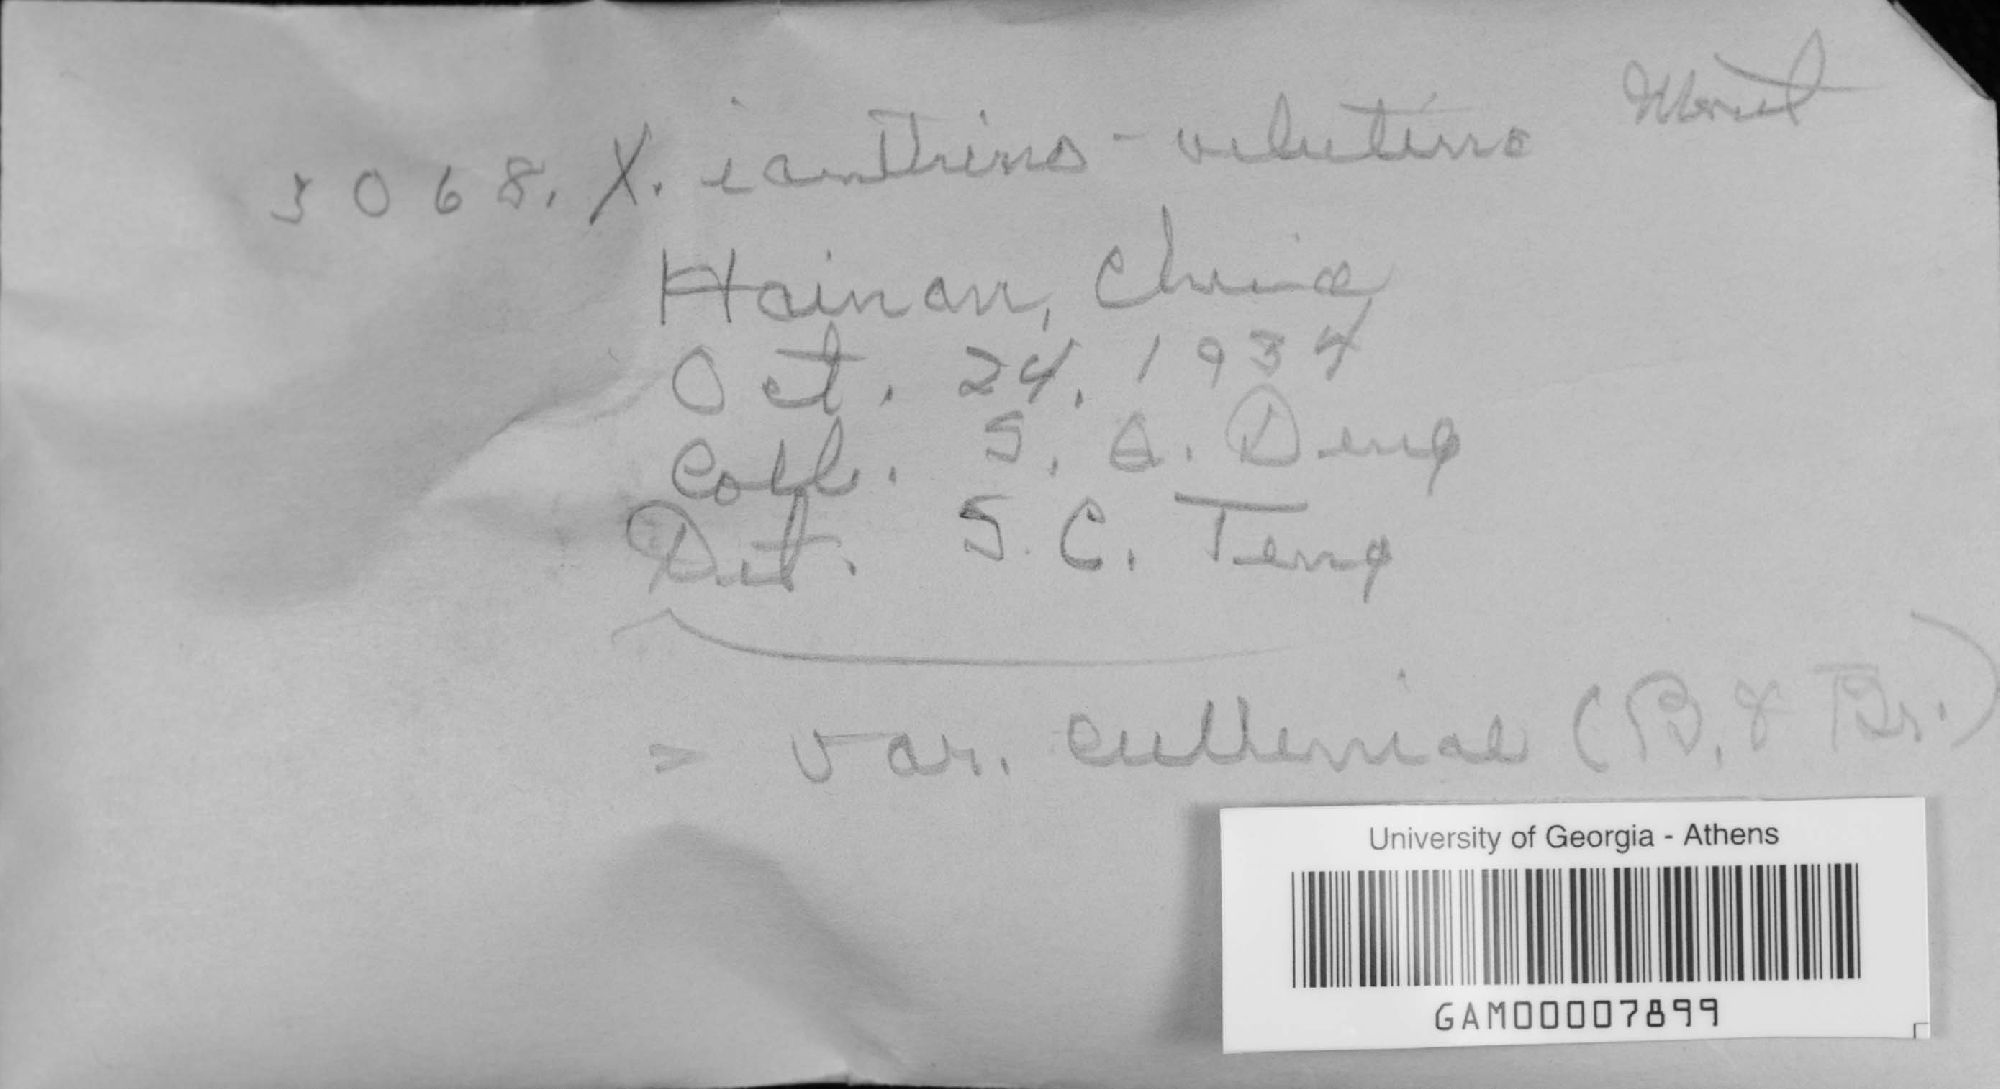 3068. X. ianthino-velutina Mont
Hainan, China
Oct. 24, 1934
Coll. S. Q. Deng
Det. S. C. Teng
= var. culleniae (B. & Br.)
University of Georgia - Athens
GAM00007899